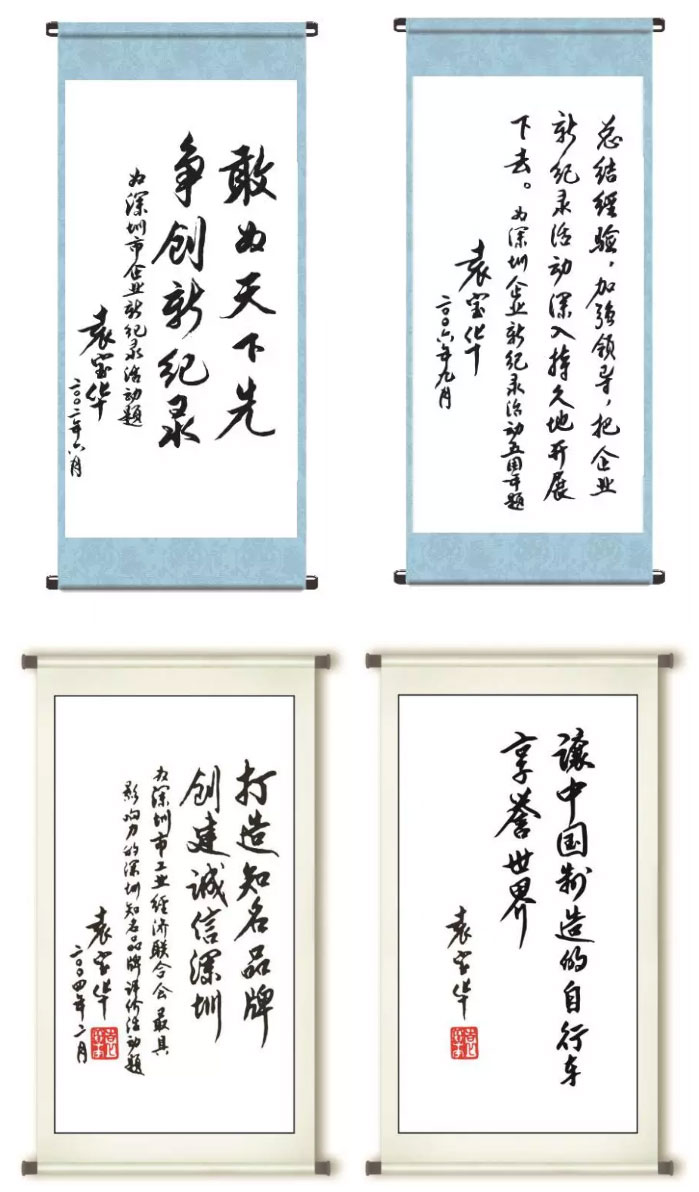 敢为天下先
争创新纪录
为深圳市企业新纪录活动题
袁宝华
二〇〇二年六月
总结经验，加强领导，把企业
新纪录活动深入持久地开展
下去。为深圳企业新纪录活动五周年题
袁宝华
二〇〇六年九月
打造知名品牌
创建诚信深圳
为深圳市工业经济联合会最具
影响力的深圳知名品牌评价活动题
袁宝华
二〇〇四年二月
讓中国制造的自行车
享誉世界
袁宝华